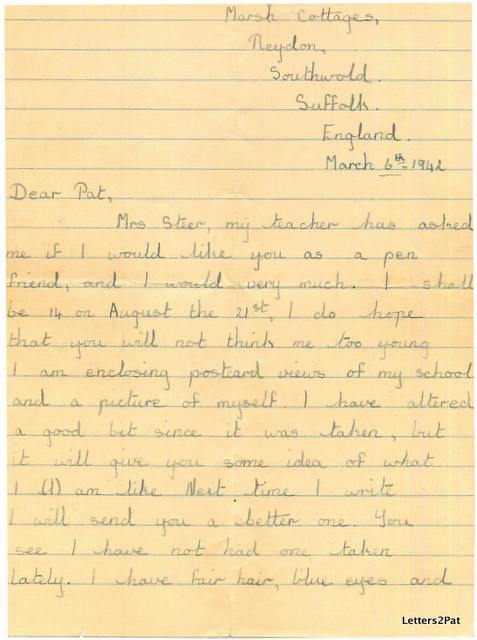 Marsh Cottages,
Reydon,
Southwold.
Suffolk.
England.
March 6th. 1942
Dear Pat,
Mrs Steer, my teacher has asked
me if I would like you as a pen
friend, and I would very much. I shall
be 14 on August the 21st, I do hope
that you will not think me too young
I am enclosing postcard views of my school
and a picture of myself. I have altered
a good bit since it was taken, but
it will give you some idea of what
I (I) am like Next time I write
I will send you a better one. You
see I have not had one taken
lately. I have fair hair, blue eyes and
Letters2Pat